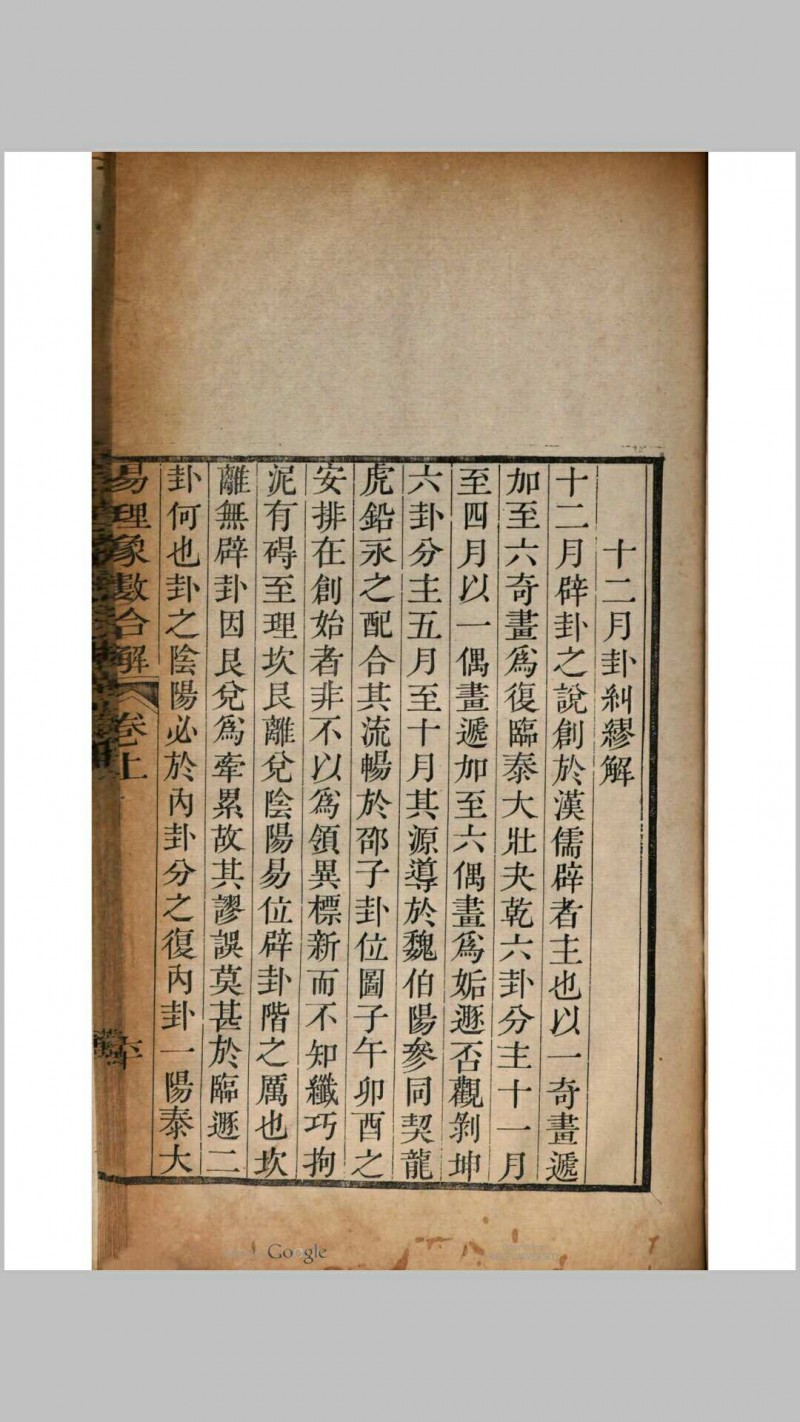 十二月卦糾繆解
十二月辟卦之說創於漢儒辟者主也以一奇畫遞
加至六奇畫爲復臨泰大壯夬乾六卦分主十一月
至四月以一偶畫遞加至六偶畫爲姤遯否觀剝坤
六卦分主五月至十月其源導於魏伯陽參同契龍
虎鉛汞之配合其流暢於邵子卦位圖子午卯酉之
安排在創始者非不以爲領異標新而不知纖巧拘
泥有碍至理坎艮離兌陰陽易位辟卦階之厲也坎
離無辟卦因艮兌爲牽累故其謬誤莫甚於臨遯二
卦何也卦之陰陽必於內卦分之復內卦一陽泰大
易理象數合解 卷上
Google